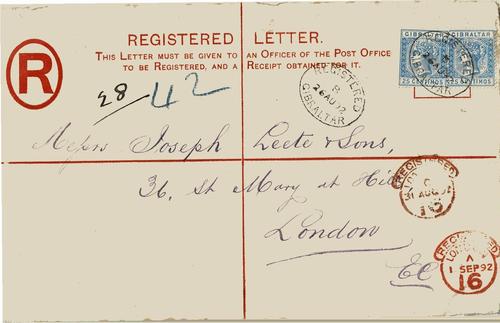 REGISTERED LETTER.
THIS LETTER MUST BE GIVEN TO AN OFFICER OF THE POST OFFICE
TO BE REGISTERED, AND A RECEIPT OBTAINED FOR IT.
R
GIBRALTAR GIBRALTAR
25 CENTIMOS 25 CENTIMOS
REGISTERED
GIBRALTAR
REGISTERED
B
26 AU 92
GIBRALTAR
28 42
Messrs Joseph Leete & Sons,
36, St Mary at Hill
London
EC
REGISTERED
LONDON
31 AUG 92
REGISTERED
LONDON
A
1 SEP 92
16